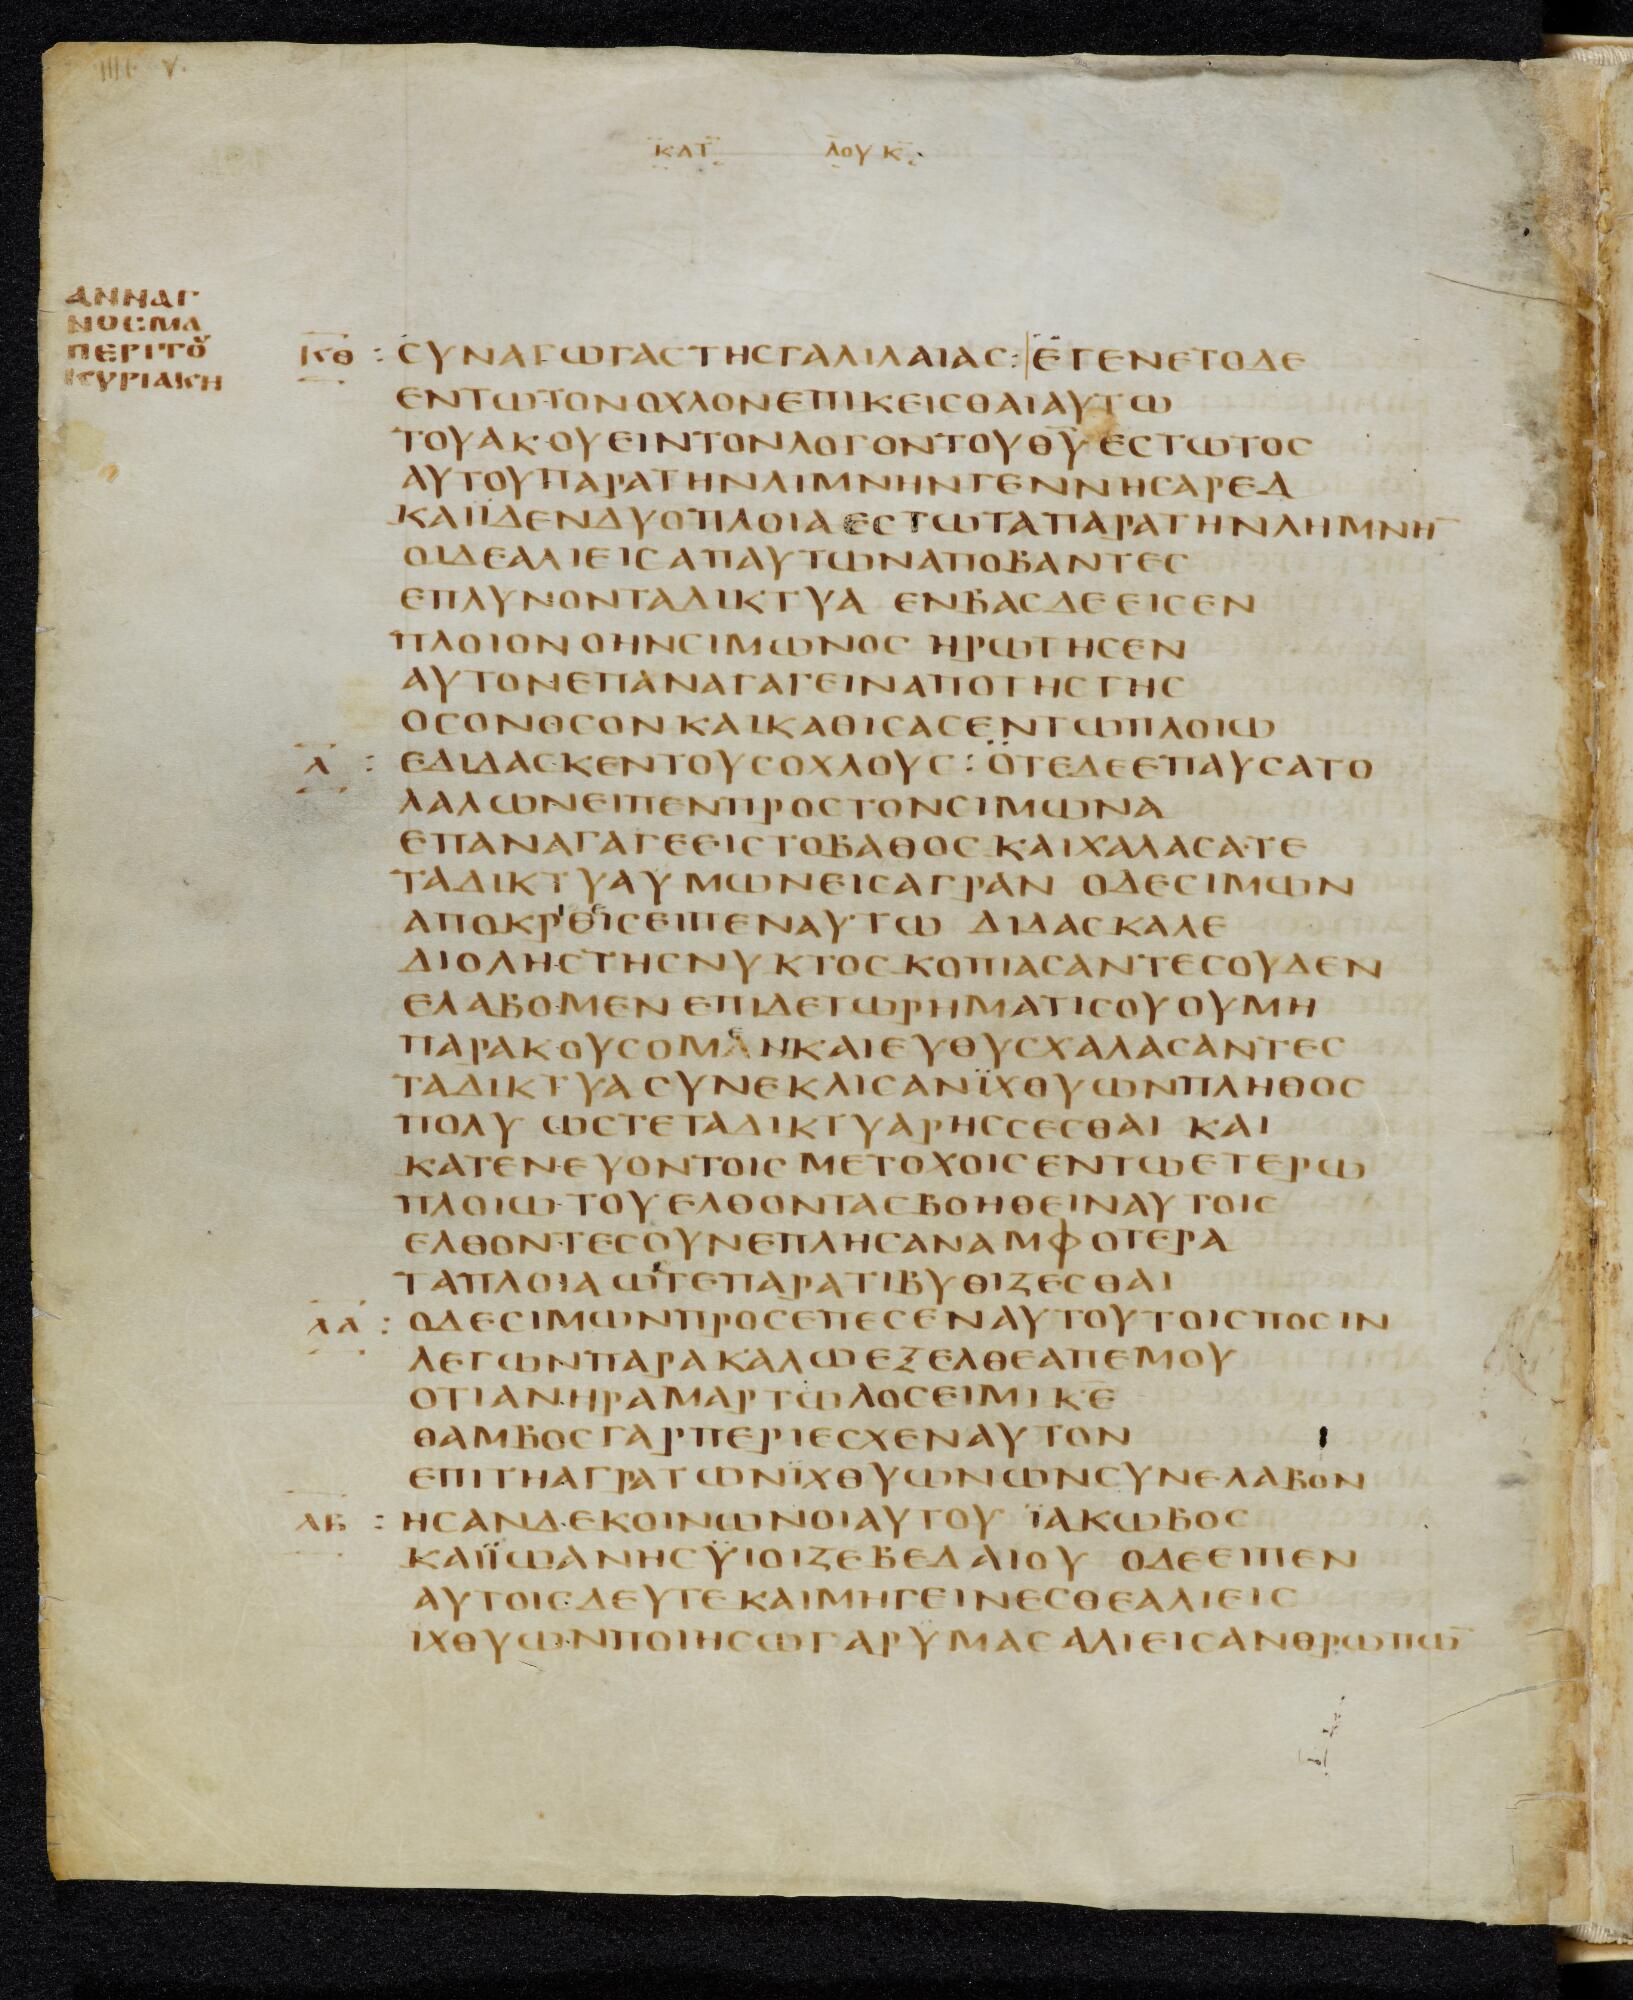 ΚΑΤ ΛΟΥΚ
ΑΝΝΑΓ
ΝΟΣΜΑ
ΠΕΡΙΤΟΥ
ΚΥΡΙΑΚΗ
ΚΘ : ϹΥΝΑΓΩΓΑϹΤΗϹΓΑΛΙΛΑΙΑϹ : ΕΓΕΝΕΤΟΔΕ
ΕΝΤΩΤΟΝΟΧΛΟΝΕΠΙΚΕΙϹΘΑΙΑΥΤΩ
ΤΟΥΑΚΟΥΕΙΝΤΟΝΛΟΓΟΝΤΟΥΘ̅Υ̅ ΕϹΤΩΤΟϹ
ΑΥΤΟΥΠΑΡΑΤΗΝΛΙΜΝΗΝΓΕΝΝΗϹΑΡΕΔ
ΚΑΙΪΔΕΝΔΥΟΠΛΟΙΑΕϹΤΩΤΑΠΑΡΑΤΗΝΛΗΜΝΗ̅
ΟΙΔΕΑΛΙΕΙϹΑΠΑΥΤΩΝΑΠΟΒΑΝΤΕϹ
ΕΠΛΥΝΟΝΤΑΔΙΚΤΥΑ ΕΝΒΑϹΔΕΕΙϹΕΝ
ΠΛΟΙΟΝΟΗΝϹΙΜΩΝΟϹ ΗΡΩΤΗϹΕΝ
ΑΥΤΟΝΕΠΑΝΑΓΑΓΕΙΝΑΠΟΤΗϹΓΗϹ
ΟϹΟΝΘϹΟΝΚΑΙΚΑΘΙϹΑϹΕΝΤΩΠΛΟΙΩ
Λ : ΕΔΙΔΑϹΚΕΝΤΟΥϹΟΧΛΟΥϹ : ΟΤΕΔΕΕΠΑΥϹΑΤΟ
ΛΑΛΩΝΕΙΠΕΝΠΡΟϹΤΟΝϹΙΜΩΝΑ
ΕΠΑΝΑΓΑΓΕΕΙϹΤΟΒΑΘΟϹΚΑΙΧΑΛΑϹΑΤΕ
ΤΑΔΙΚΤΥΑΥΜΩΝΕΙϹΑΓΡΑΝ ΟΔΕϹΙΜΩΝ
ΑΠΟΚΡΙΘΕΙϹΕΙΠΕΝΑΥΤΩ ΔΙΔΑϹΚΑΛΕ
ΔΙΟΛΗϹΤΗϹΝΥΚΤΟϹΚΟΠΙΑϹΑΝΤΕϹΟΥΔΕΝ
ΕΛΑΒΟΜΕΝ ΕΠΙΔΕΤΩΡΗΜΑΤΙϹΟΥΟΥΜΗ
ΠΑΡΑΚΟΥϹΟΜΑΙΚΑΙΕΥΘΥϹΧΑΛΑϹΑΝΤΕϹ
ΤΑΔΙΚΤΥΑϹΥΝΕΚΛΙϹΑΝΪΧΘΥΩΝΠΛΗΘΟϹ
ΠΟΛΥ ΩϹΤΕΤΑΔΙΚΤΥΑΡΗϹϹΕϹΘΑΙ ΚΑΙ
ΚΑΤΕΝΕΥΟΝΤΟΙϹΜΕΤΟΧΟΙϹΕΝΤΩΕΤΕΡΩ
ΠΛΟΙΩΤΟΥΕΛΘΟΝΤΑϹΒΟΗΘΕΙΝΑΥΤΟΙϹ
ΕΛΘΟΝΤΕϹΟΥΝΕΠΛΗϹΑΝΑΜΦΟΤΕΡΑ
ΤΑΠΛΟΙΑΩϹΤΕΠΑΡΑΤΙΒΥΘΙΖΕϹΘΑΙ
ΛΑ : ΟΔΕϹΙΜΩΝΠΡΟϹΕΠΕϹΕΝΑΥΤΟΥΤΟΙϹΠΟϹΙΝ
ΛΕΓΩΝΠΑΡΑΚΑΛΩΕΞΕΛΘΕΑΠΕΜΟΥ
ΟΤΙΑΝΗΡΑΜΑΡΤΩΛΟϹΕΙΜΙΚ̅Ε̅
ΘΑΜΒΟϹΓΑΡΠΕΡΙΕϹΧΕΝΑΥΤΟΝ
ΕΠΙΤΗΑΓΡΑΤΩΝΪΧΘΥΩΝΩΝϹΥΝΕΛΑΒΟΝ
ΛΒ : ΗϹΑΝΔΕΚΟΙΝΩΝΟΙΑΥΤΟΥ ΪΑΚΩΒΟϹ
ΚΑΙΪΩΑΝΗϹΫΙΟΙΖΕΒΕΔΑΙΟΥ ΟΔΕΕΙΠΕΝ
ΑΥΤΟΙϹΔΕΥΤΕΚΑΙΜΗΓΕΙΝΕϹΘΕΑΛΙΕΙϹ
ΙΧΘΥΩΝΠΟΙΗϹΩΓΑΡΥΜΑϹΑΛΙΕΙϹΑΝΘΡΩΠΩ̅